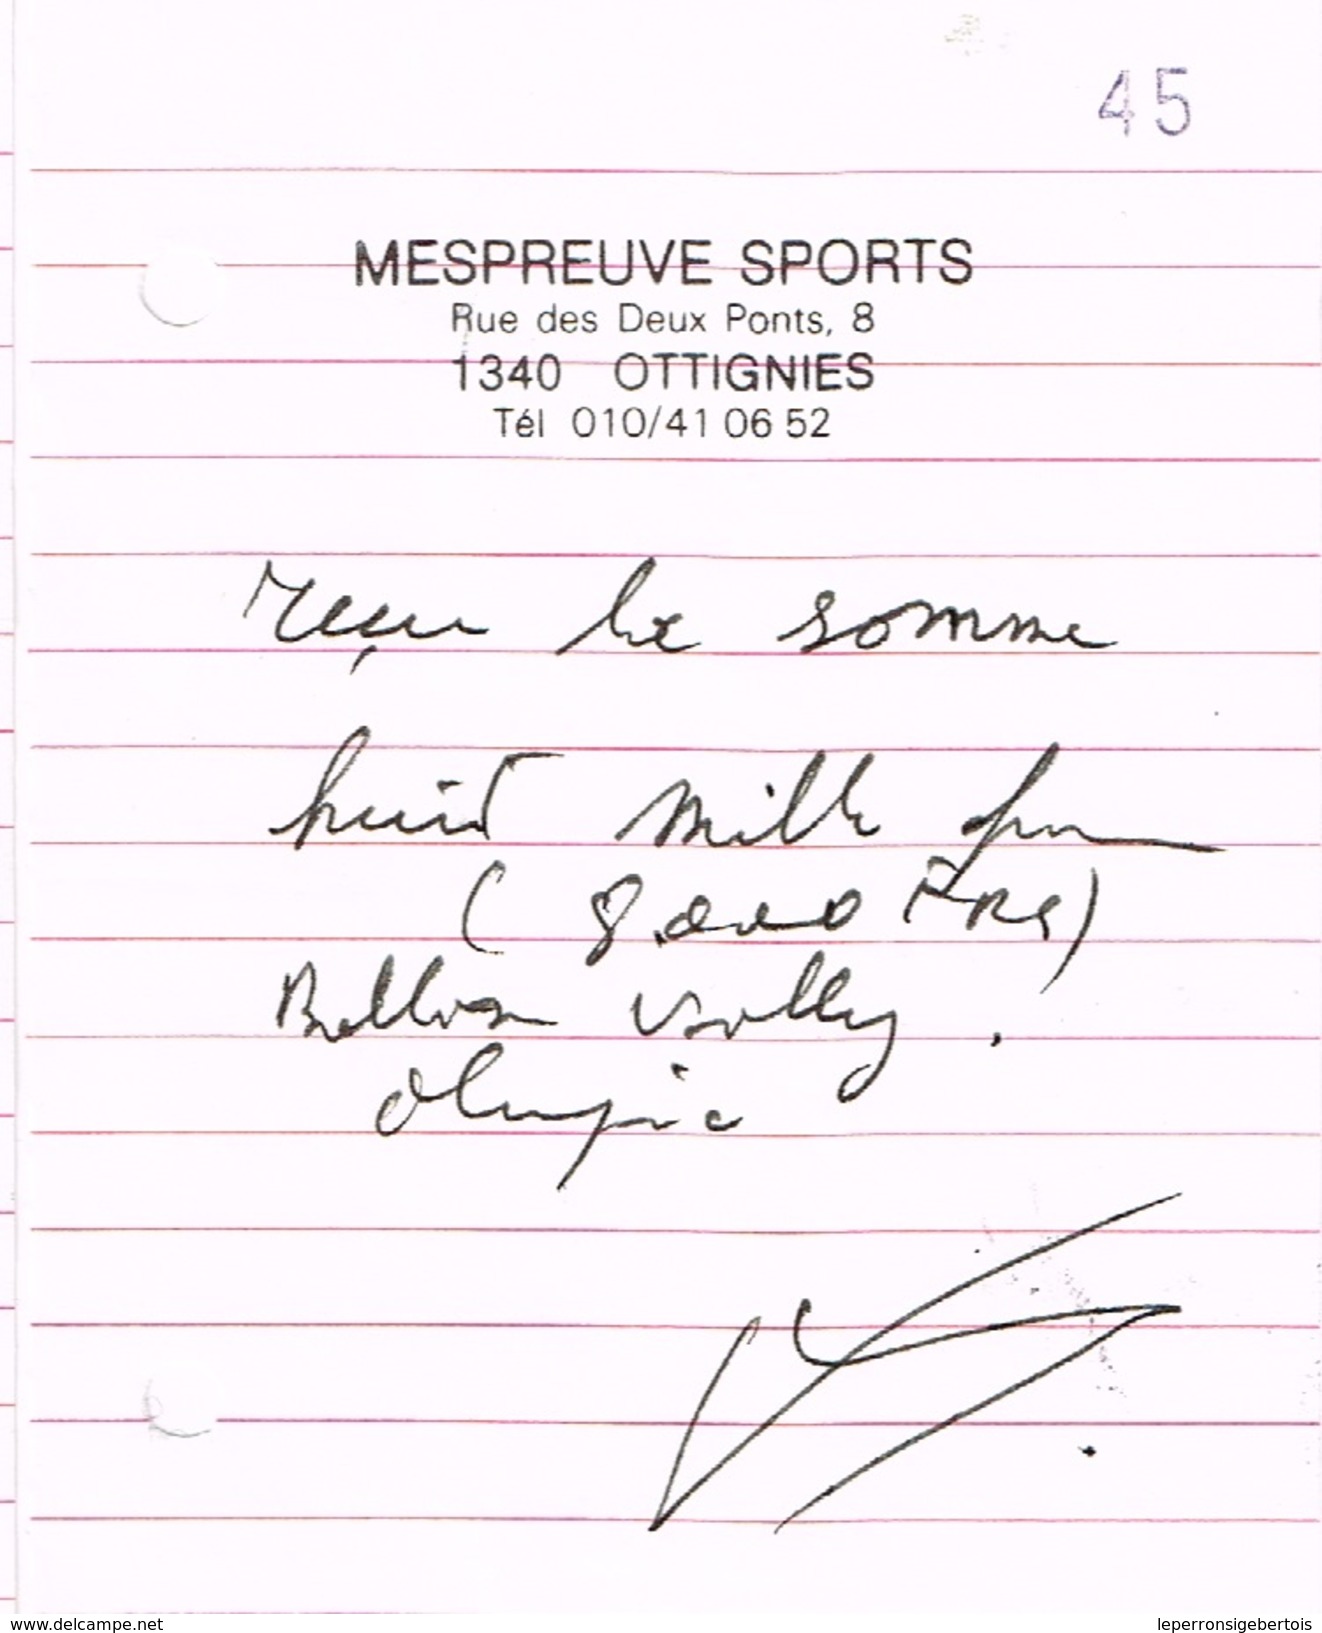 45
MESPREUVE SPORTS
Rue des Deux Ponts, 8
1340 OTTIGNIES
Tél 010/41 06 52
reçu la somme
huit mille frs
(8.000 FRS)
Ballons volley.
olympic
www.delcampe.net
leperronsigebertois